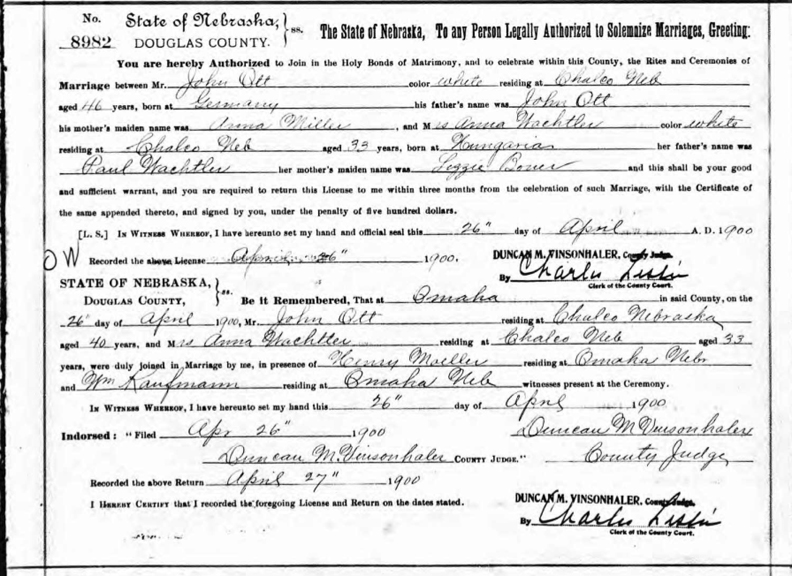 No. 8982 State of Nebraska, DOUGLAS COUNTY. } ss. The State of Nebraska, To any Person Legally Authorized to Solemnize Marriages, Greeting:
You are hereby Authorized to Join in the Holy Bonds of Matrimony, and to celebrate within this County, the Rites and Ceremonies of
Marriage between Mr. John Ott color white residing at Chalco Neb
aged 46 years, born at Germany his father's name was John Ott
his mother's maiden name was Anna Miller, and Mrs Anna Wachtler color white
residing at Chalco Neb aged 33 years, born at Hungaria her father's name was
Paul Wachtler her mother's maiden name was and this shall be your good
and sufficient warrant, and you are required to return this License to me within three months from the celebration of such Marriage, with the Certificate
of the same appended thereto, and signed by you, under the penalty of five hundred dollars.
[L. S.] IN WITNESS WHEREOF, I have hereunto set my hand and official seal this 26" day of April A. D. 1900
OW Recorded the above License April 26" 1900. DUNCAN M. VINSONHALER, County Judge.
By Charles
Clerk of the County Court.
STATE OF NEBRASKA, DOUGLAS COUNTY, } ss. Be it Remembered, That at Omaha in said County, on the
26" day of April 1900, Mr. John Ott residing at Chalco Nebraska
aged 40 years, and Mrs Anna Wachtler residing at Chalco Neb aged 33
years, were duly joined in Marriage by me, in presence of Henry Moeller residing at Omaha Nebr
and Wm Kaufmann residing at Omaha Neb witnesses present at the Ceremony.
IN WITNESS WHEREOF, I have hereunto set my hand this 26" day of April 1900
Indorsed: "Filed Apr 26" 1900 Duncan M Vinsonhaler
Duncan M. Vinsonhaler COUNTY JUDGE." County Judge
Recorded the above Return April 27" 1900
I HEREBY CERTIFY that I recorded the foregoing License and Return on the dates stated. DUNCAN M. VINSONHALER, County Judge.
By Charles
Clerk of the County Court.